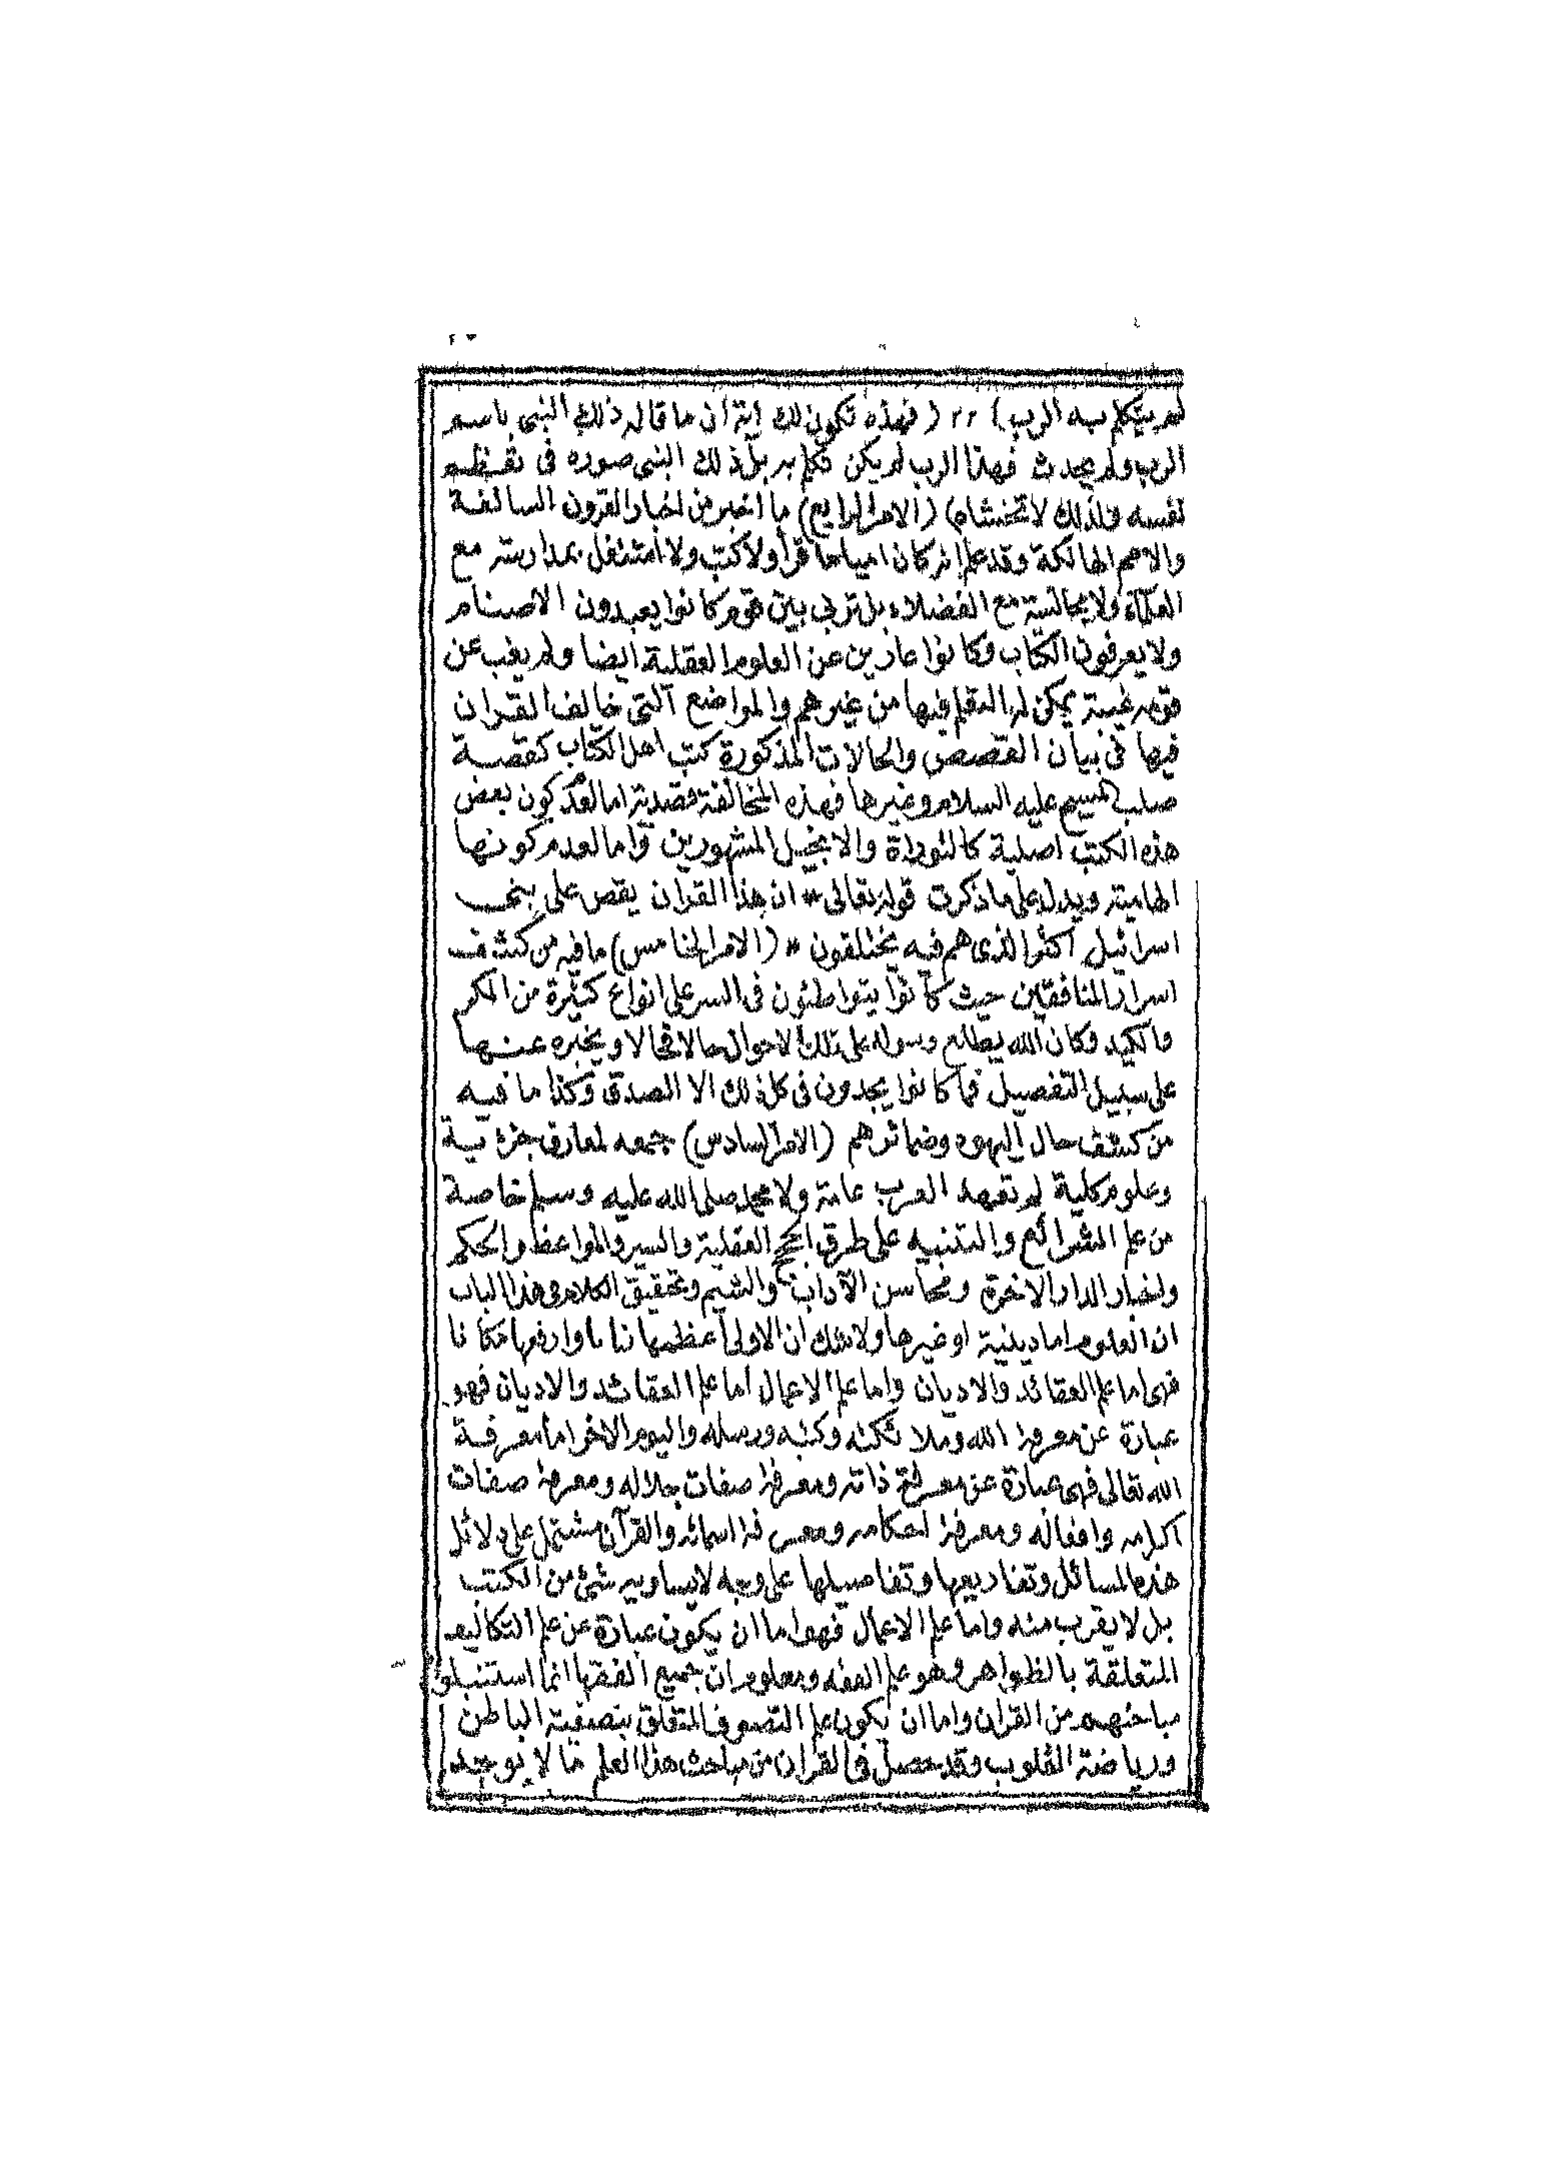 لم يتكلم به الرب) ٢٢ (فهذه تكون لك اية ان ما قاله ذلك النبى باسم
الرب ولم يحدث فهذا الرب لم يكن تكلم به بل ذلك النبى صوره فى تعظم
نفسه ولذلك لا تخشاه) (الامر الرابع) ما اخبر من اخبار القرون السالفة
والامم الهالكة وقد علم انه كان اميا ما قرأ ولا كتب ولا اشتغل بمدارسة مع
العلماء ولا مجالسة مع الفضلاء بل تربى بين قوم كانوا يعبدون الاصنام
ولا يعرفون الكتاب وكانوا عارين عن العلوم العقلية ايضا ولم يغب عن
قومه غيبة يمكن له التعلم فيها من غيرهم والمواضع التى خالف القران
فيها فى بيان القصص والحالات المذكورة كتب اهل الكتاب كقصة
صلب المسيح عليه السلام وغيرها فهذه المخالفة قصدية اما لعدم كون بعض
هذه الكتب اصلية كالتوراة والانجيل المشهورين واما لعدم كونها
الهامية ويدل على ما ذكرت قوله تعالى * ان هذا القران يقص على بنى
اسرائيل اكثر الذى هم فيه يختلفون * (الامر الخامس) ما فيه من كشف
اسرار المنافقين حيث كانوا يتواطئون فى السر على انواع كثيرة من المكر
والكيد وكان الله يطلع رسوله على تلك الاحوال حالا فحالا ويخبره عنها
على سبيل التفصيل فما كانوا يجدون فى كل ذلك الا الصدق وكذا ما فيه
من كشف حال اليهود وضمائرهم (الامر السادس) جمعه لمعارف جزئية
وعلوم كلية لم تعهد العرب عامة ولا محمد صلى الله عليه وسلم خاصة
من علم الشرائع والتنبيه على طرق الحجج العقلية والسير والمواعظ والحكم
واخبار الدار الاخرة ومحاسن الآداب والشيم وتحقيق الكلام فى هذا الباب
ان العلوم اما دينية او غيرها ولا شك ان الاولى اعظمها شانا وارفعها مكانا
فهى اما علم العقائد والاديان واما علم الاعمال اما علم العقائد والاديان فهو
عبارة عن معرفة الله وملائكته وكتبه ورسله واليوم الاخر اما معرفة
الله تعالى فهى عبارة عن معرفة ذاته ومعرفة صفات جلاله ومعرفة صفات
اكرامه وافعاله ومعرفة احكامه ومعرفة اسمائه والقرآن مشتمل على دلائل
هذه المسائل وتفاريعها وتفاصيلها على وجه لا يساويه شئ من الكتب
بل لا يقرب منه واما علم الاعمال فهو اما ان يكون عبارة عن علم التكاليف
المتعلقة بالظواهر وهو علم الفقه ومعلوم ان جميع الفقها انما استنبطوا
مباحثهم من القران واما ان يكون علم التصوف المتعلق بتصفية الباطن
ورياضة القلوب وقد حصل فى القران من مباحث هذا العلم ما لا يوجد